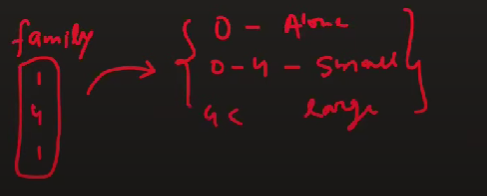 family
1
4
1
0 - Alone
0-4 - Small
4< large